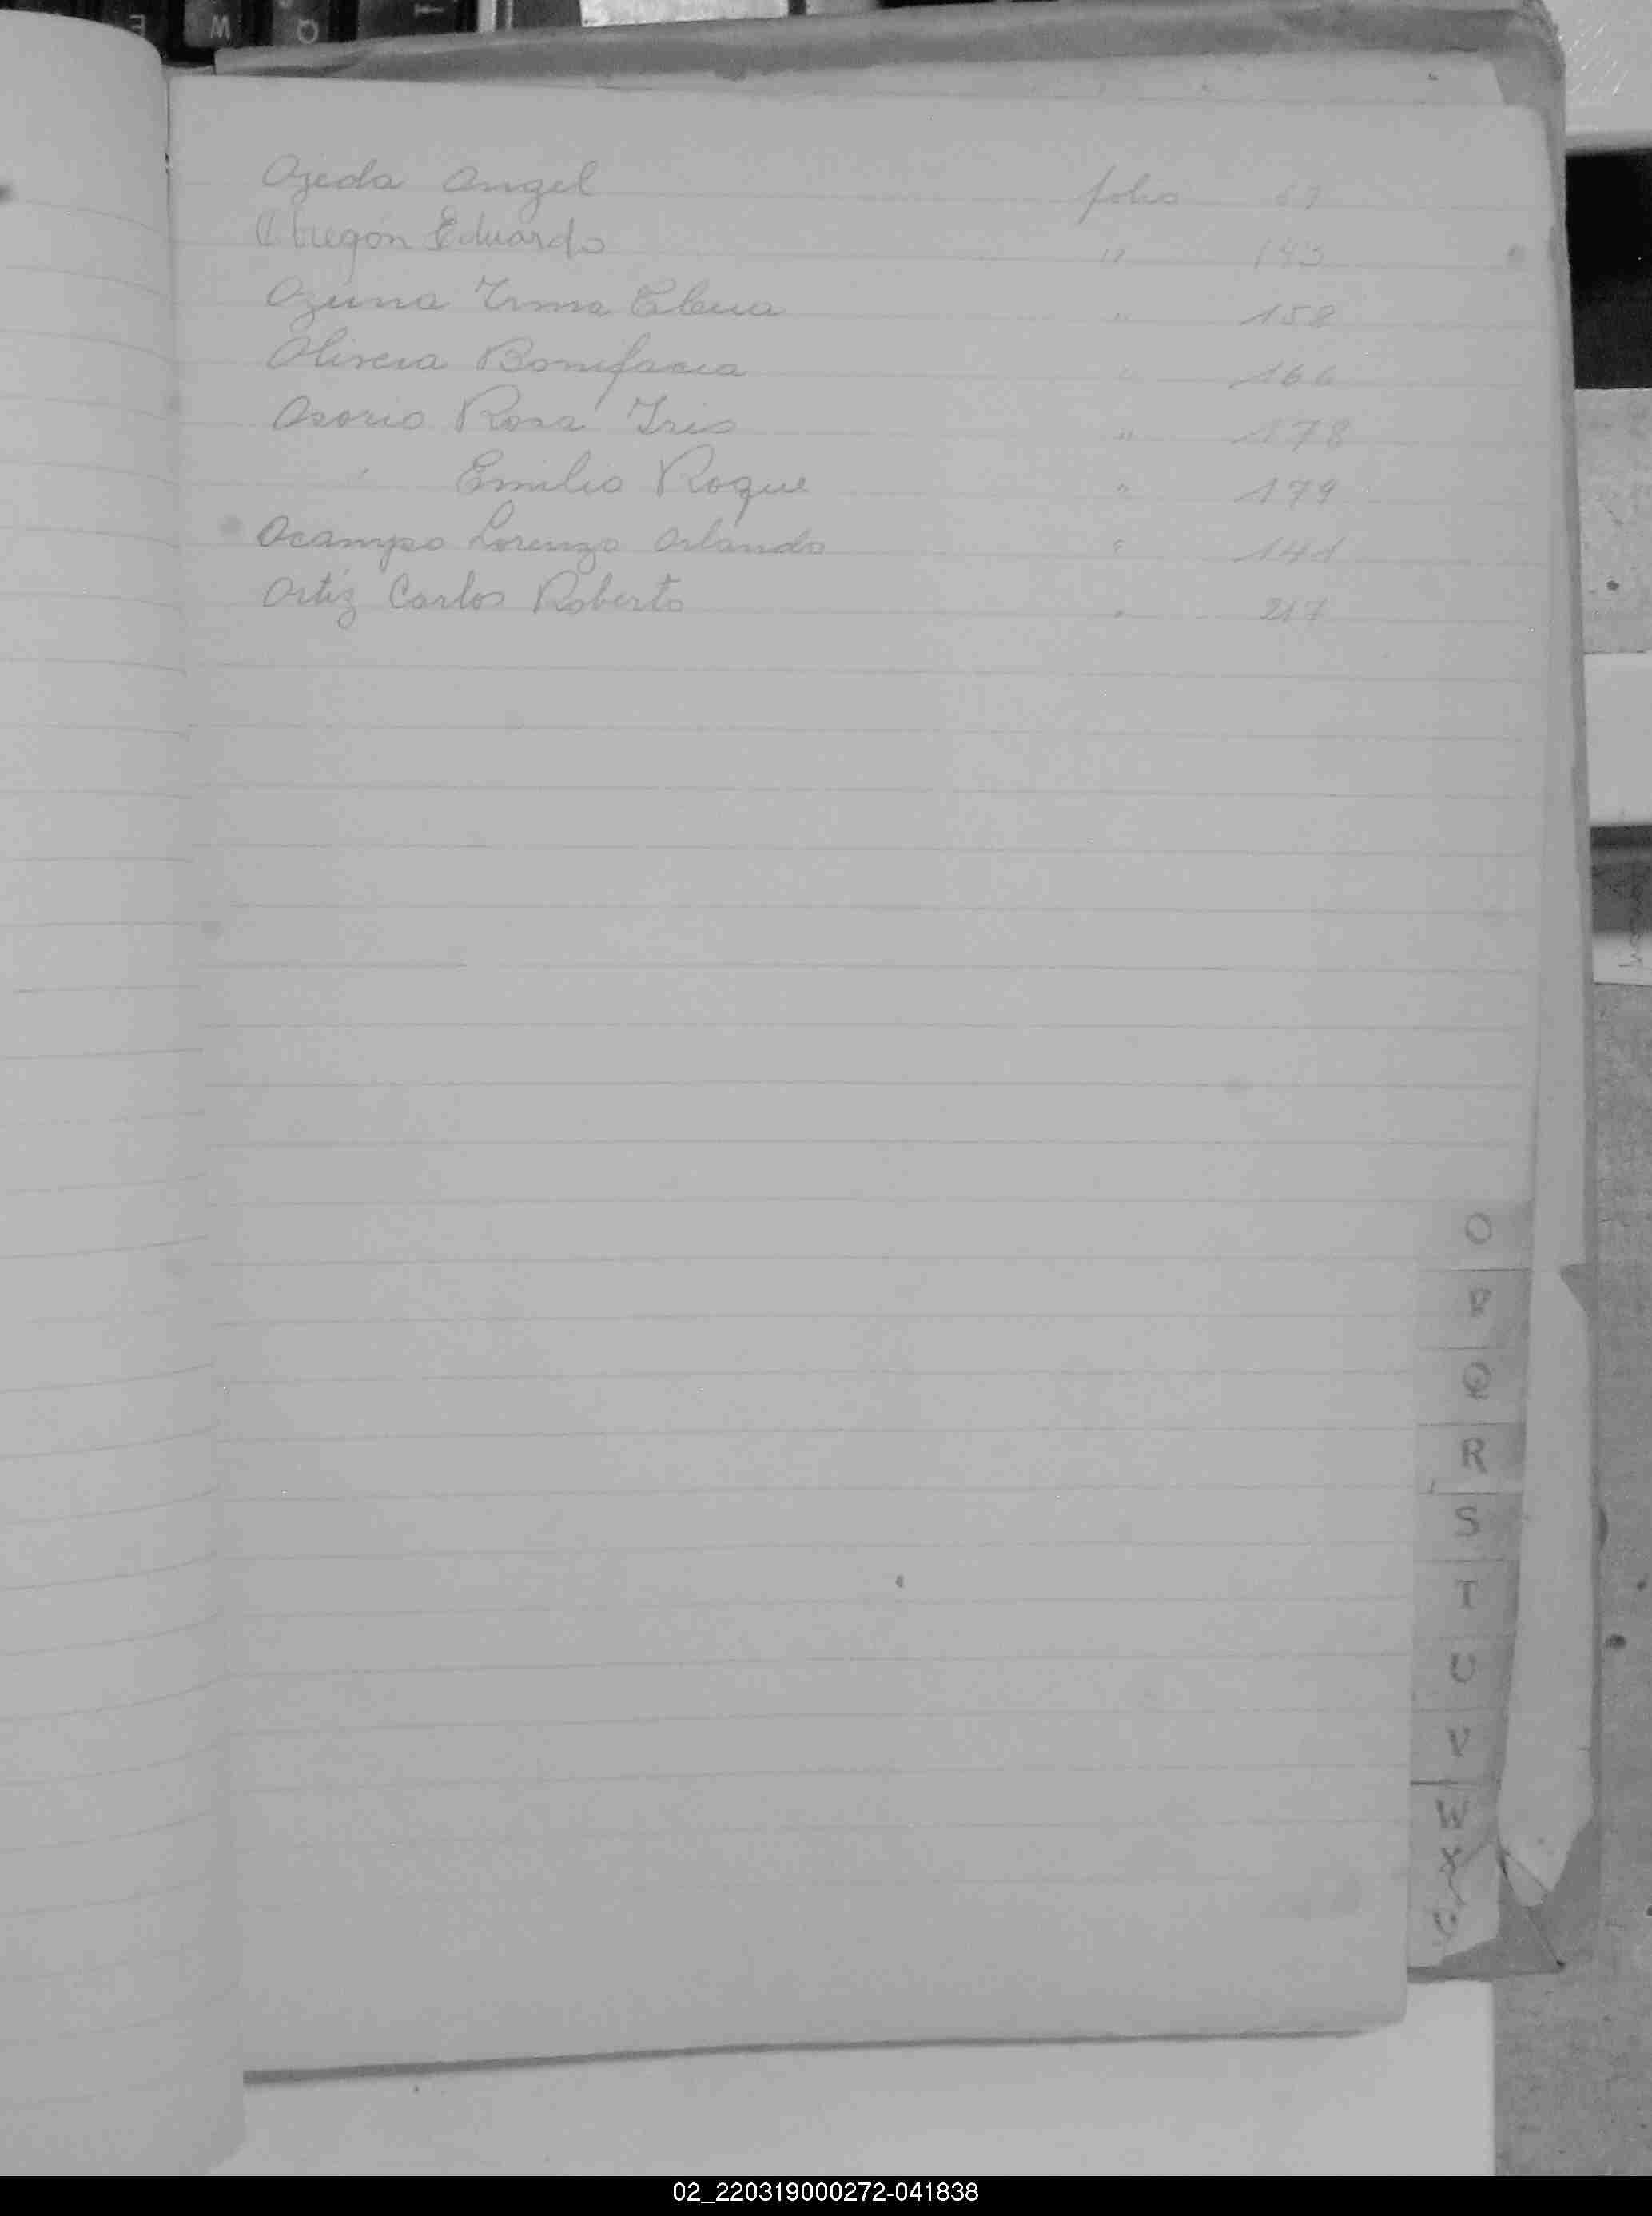 Ojeda Angel folio 67
Obregón Eduardo " 143
Ozuna Irma Elena " 158
Olivera Bonifacia " 166
Osorio Rosa Iris " 178
" Emilio Roque " 179
Ocampo Lorenzo Orlando " 141
Ortíz Carlos Roberto " 217
O
P
Q
R
S
T
U
V
W
X
02_220319000272-041838